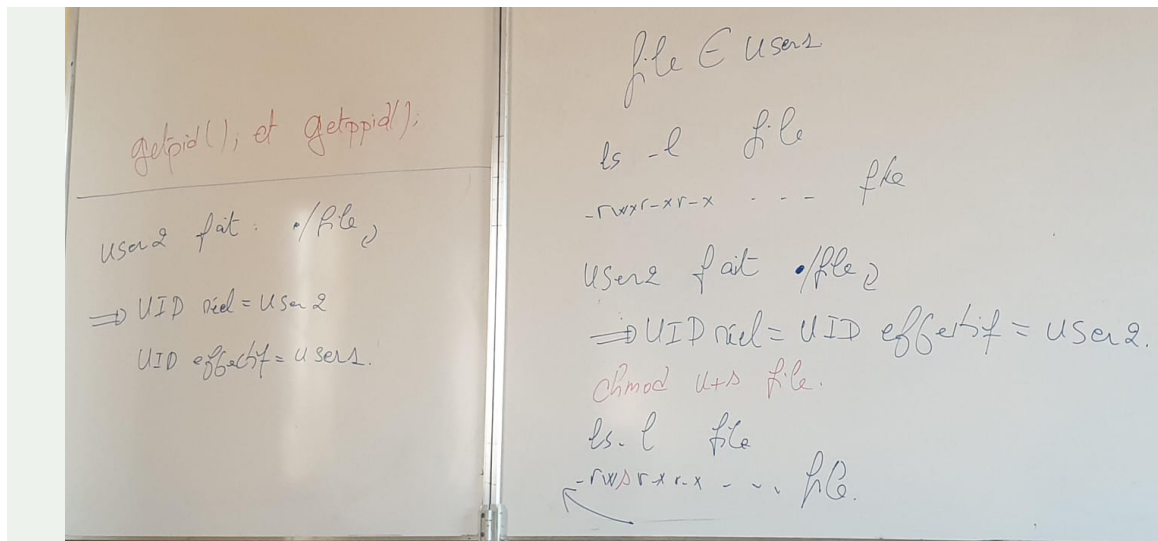 getpid(); et getppid();
user2 fait : ./file
⇒ UID réel = user2
UID effectif = user1.
file ∈ user1
ls -l file
-rwxr-xr-x . - - file
user2 fait ./file
⇒ UID réel = UID effectif = user2.
chmod u+s file.
ls -l file
-rwsr-xr-x - - .. file.